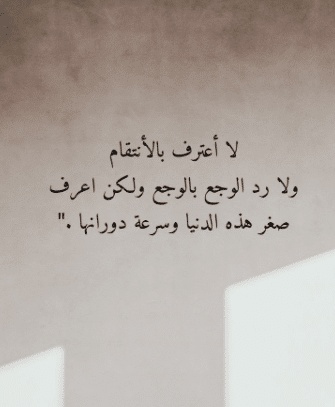 لا أعترف بالأنتقام
ولا رد الوجع بالوجع ولكن اعرف
صغر هذه الدنيا وسرعة دورانها ."